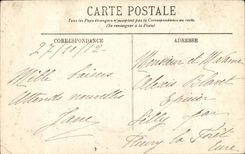 CARTE POSTALE
Tous les Pays étrangers n'acceptent pas la Correspondance au recto
(Se renseigner à la Poste)
CORRESPONDANCE
ADRESSE
27/10/12
Mille baisers
Attends nouvelles
Monsieur et Madame
Alexis
Epicier
par
Fleury la Forêt
Eure